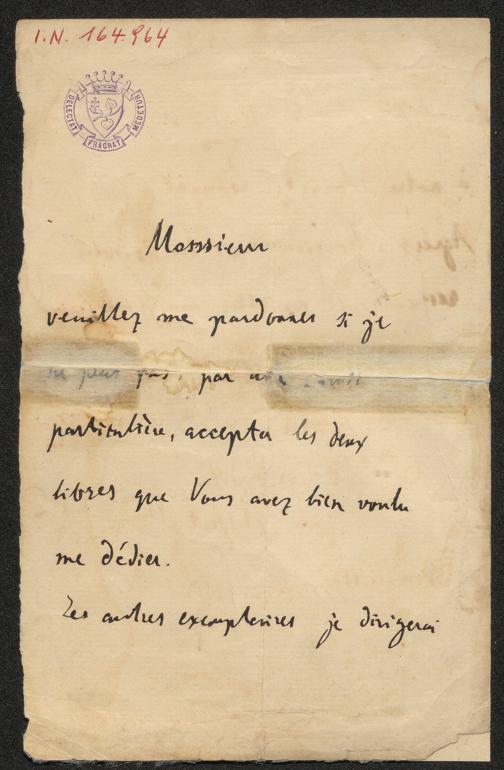 I.N. 164.964
DELECTAT
FRAGRAT
MEDETUR
Mosssieur
veuillez me pardonner si je
ne peux pas, par une
particulière, accepter les deux
libres que Vous avez bien voulu
me dédier.
Les autres exemplaires je dirigerai